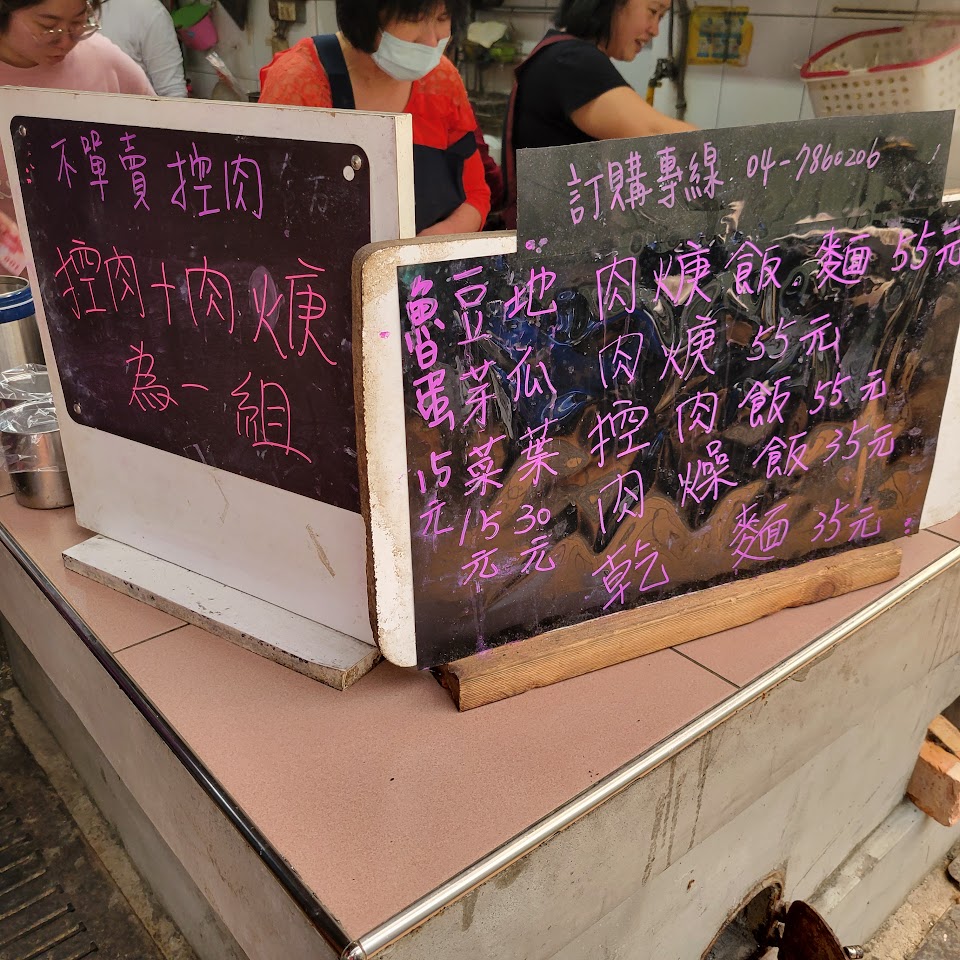 不單賣控肉
控肉+肉焿
為一組
訂購專線 04-7860206
肉焿飯.麵55元
肉焿55元
控肉飯55元
肉燥飯35元
乾麵35元
地瓜葉30元
豆芽菜15元
魯蛋15元